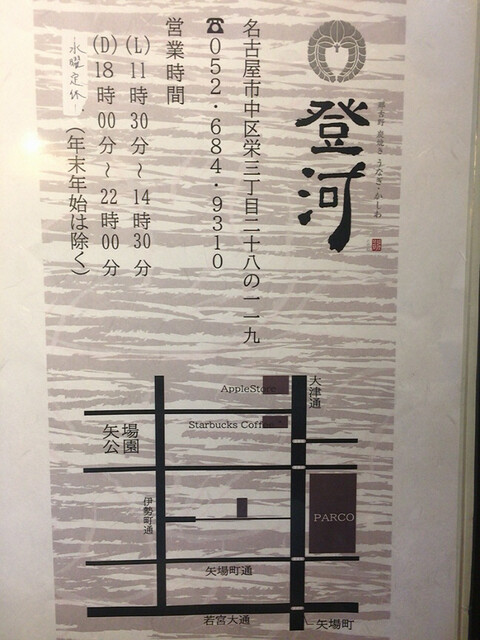 炭焼き うなぎ・かしわ
登河
名古屋市中区栄三丁目二十八の一一九
☎052・684・9310
営業時間
(L) 11時30分〜14時30分
(D) 18時00分〜22時00分
水曜定休
(年末年始は除く)
AppleStore
大津通
Starbucks Coffee
矢場公園
伊勢町通
PARCO
矢場町通
若宮大通
矢場町